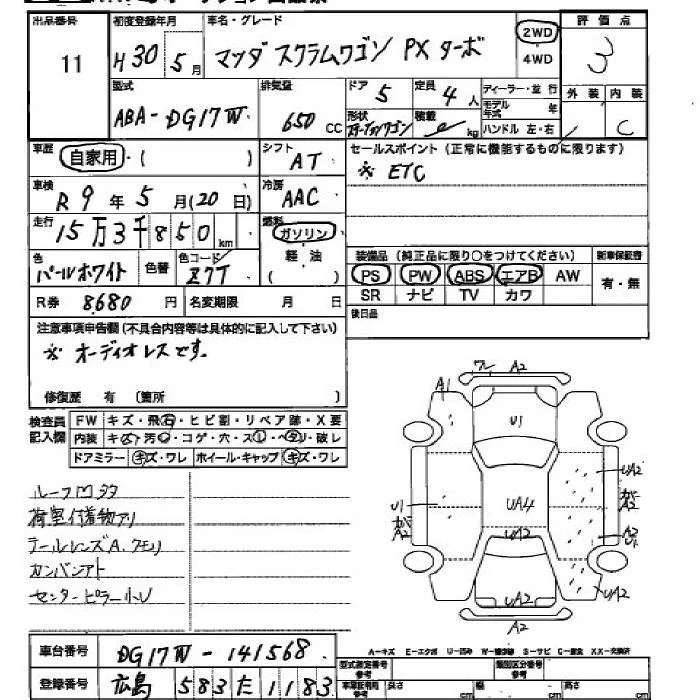 出品番号 初度登録年月 車名・グレード 評価点
11 H30 5月 マツダ スクラムワゴン PX ターボ 2WD 3
4WD
型式 排気量 ドア 定員 ディーラー・並行 外装 内装
ABA-DG17W 650 CC 5 4人 モデル年式 年 C
形状 積載 kg ハンドル 左・右
車歴 自家用・( ) シフト AT セールスポイント(正常に機能するものに限ります)
※ ETC
車検 R9年5月(20日) 冷房 AAC
走行 15万3千850km 燃料 ガソリン
軽油
( )
色 パールホワイト 色替 色コード Z7T
装備品(純正品に限り○をつけてください) 新車保証書
PS PW ABS エアB AW 有・無
SR ナビ TV カワ
R券 8680円 名変期限 月 日 後日品
注意事項申告欄(不具合内容等は具体的に記入して下さい)
※ オーディオレスです。
修復歴 有 (箇所 )
検査員記入欄
FW キズ・飛石・ヒビ割・リペア跡・X要
内装 キズ・汚・コゲ・穴・スレ・ヘタリ・破レ
ドアミラー キズ・ワレ ホイール・キャップ キズ・ワレ
ワレ A2
A1
U1
UA2
U1 UA4 A2
A2 UA2 U1
UA2
UA2
A2
ルーフ凹 タタ
荷室付着物アリ
テールレンズA、クモリ
カンバンアト
センターピラー小U
車台番号 DG17W-141568
登録番号 広島 583 た 1183
A-キズ E-エクボ U-凹み W-補修跡 S-サビ C-腐食 XX-交換済
型式指定番号 参考 類別区分番号 参考
車庫証明用 参考 長さ cm 幅 cm 高さ cm